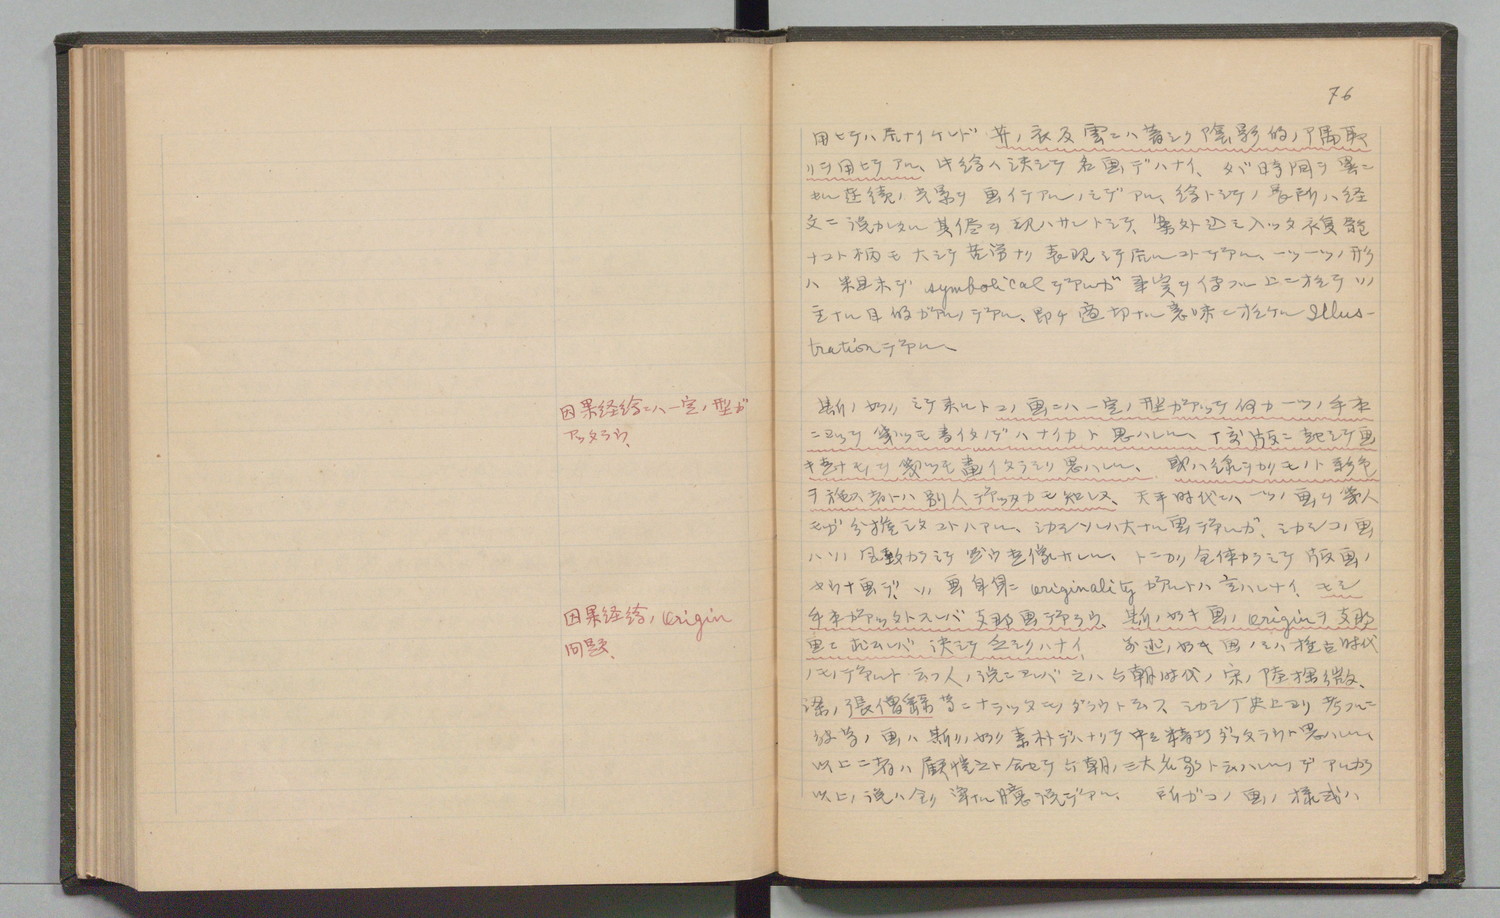 因果経絵ニハ一定ノ型ガ
アッタラウ、
因果経絵ノ origin
問題、
76
用ヒテハ居ナイケレド 其ノ衣及雲ニハ著シク陰影的ノ隈取
リヲ用ヒテアル、此絵ハ決シテ名画デハナイ、タダ時間ヲ異ニ
セル連続ノ光景ヲ画イテアルノミデアル、絵トシテノ長所ハ経
文ニ説カレタル其儘ヲ現ハサントシテ、案外込ミ入ッタ複雑
ナコト柄モ大シテ苦労ナク表現シテ居ルコトデアル、一ツ一ツノ形
ハ 粗末デ symbolical デアルガ 事実ヲ伝フル上ニ於テソノ
主ナル目的ガアルノデアル、即チ適切ナル意味ニ於ケル Illus-
tration デアル、
斯ノ如クシテ来ルトコノ画ニハ一定ノ型ガアッテ何カ一ツノ手本
ニヨッテ幾ツモ書イタノデハナイカト思ハレル、丁度版ニ起シテ画
ヲ幾ツモ画イタラシク思ハレル、或ハ線ヲカクモノト彩色
ヲ施ス者トハ別人デアッタカモ知レヌ、天平時代ニハ一ツノ画ヲ幾人
モガ分担シタコトハアル、シカシソレハ大ナル画デアルガ、シカシコノ画
ハソノ 数カラシテ サウ想像サレル、トニカク全体カラシテ版画ノ
ヤウナ画デ、ソノ画自身ニ originality ガアルトハ言ハレナイ、モシ
手本ガアッタトスレバ支那画デアラウ、斯ノ如キ画ノ origin ヲ支那
画ニ起スレバ決シテ ナイ、前述ノ如キ画ノミハ推古時代
ノモノデアルト云フ人ノ説ニヨレバ之ハ六朝時代ノ宋ノ陸探微、
梁ノ張僧繇等ニナラッタモノダラウト云フ、シカシ歴史上ヨリ考フルニ
彼等ノ画ハ斯クノ如ク素朴デハナクテ中々精巧ダッタラウト思ハレル、
以上二者ハ顧愷之ト合セテ六朝ノ三大名家ト云ハレルノデアルカラ
以上ノ説ハ全ク単ナル臆説デアル、 所ガコノ画ノ様式ハ